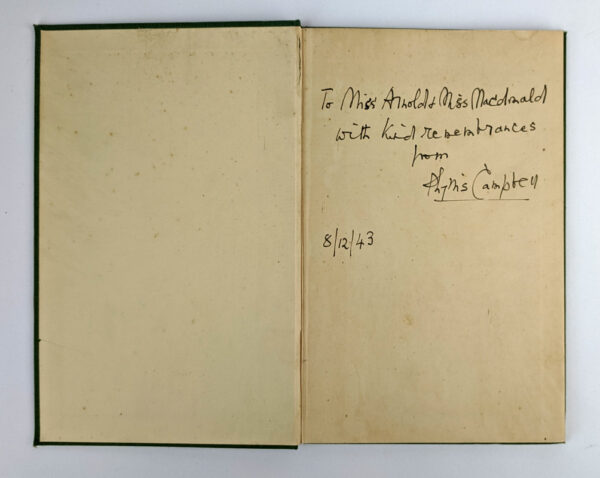 To Miss Arnold & Miss Macdonald
with kind remembrances
from
Phyllis Campbell
8/12/43